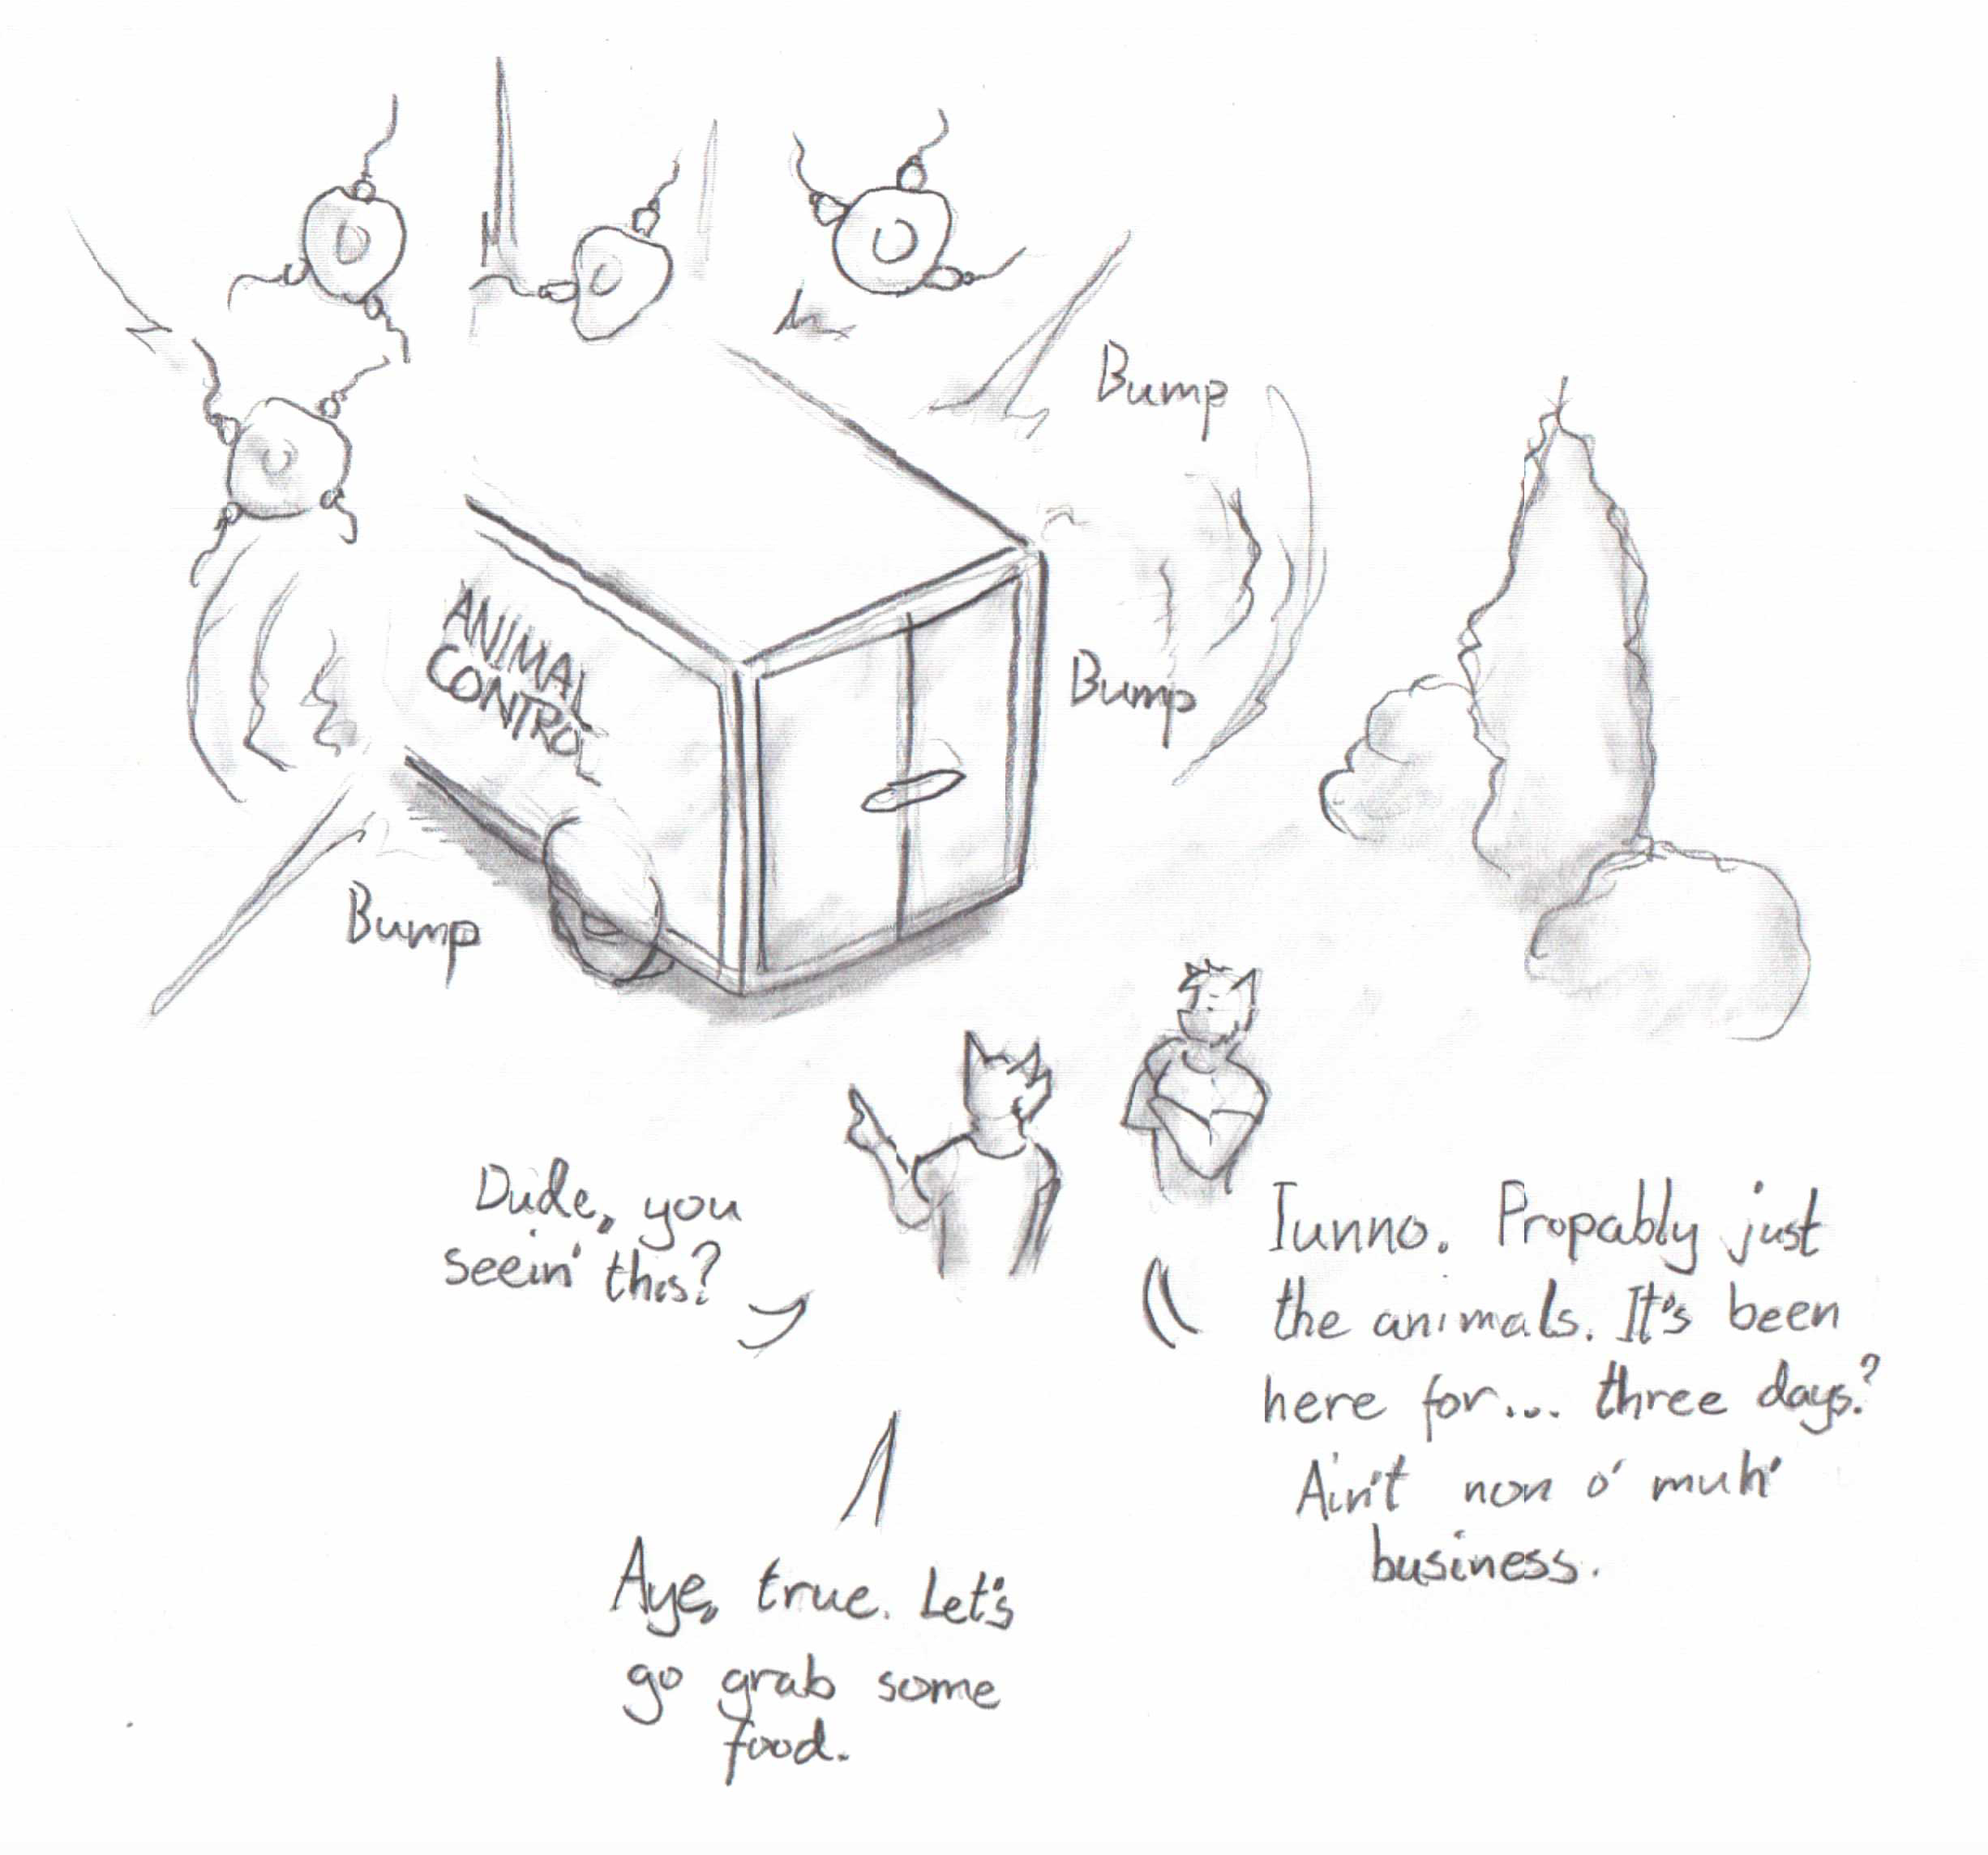 Bump
ANIMAL
CONTROL
Bump
Bump
Dude, you
seein' this?
Iunno. Propably just
the animals. It's been
here for... three days?
Ain't non o' muh'
business.
Aye, true. Let's
go grab some
food.